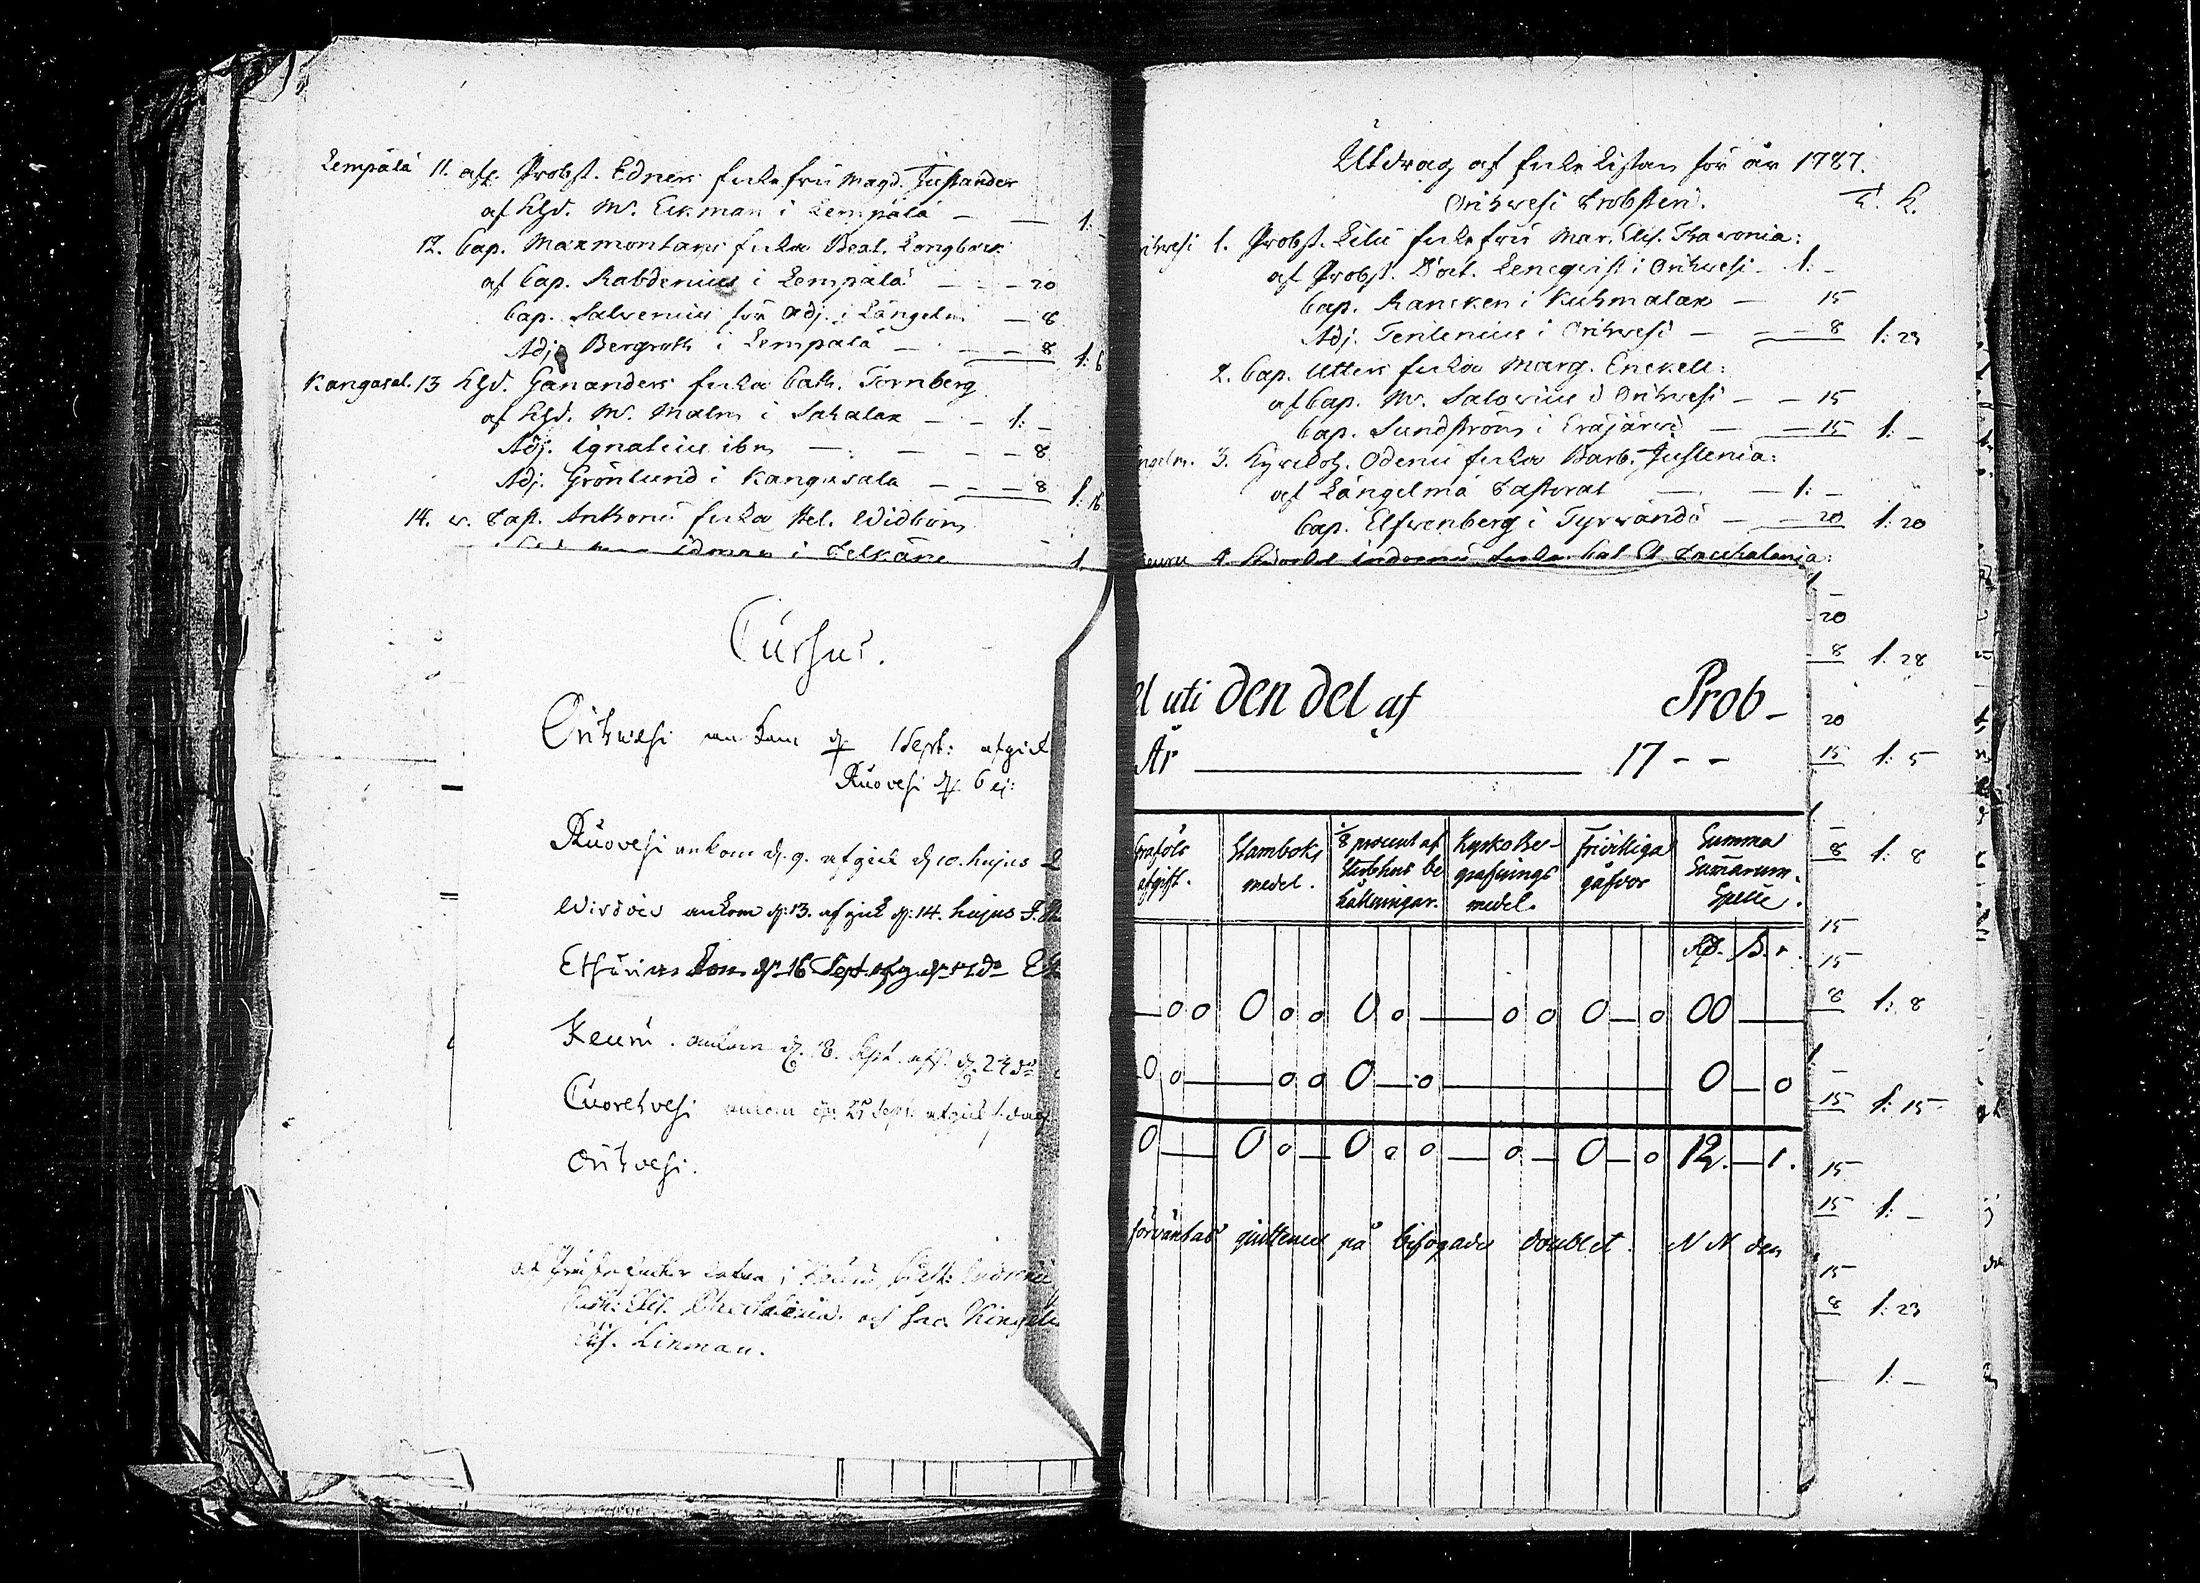 Lempälä 11. afl. Probst. Edners Enkefru Magd. Justander
af Khd. M. Eckman i Lempälä — — 1:
12. Cap. Maxmontans Enka Beat. Longberk
af Cap. Rabdenius i Lempälä — — 20
Cap. Salvenius för Adj. i Längelm — 8
Adj. Bergroth i Lempälä — — 8 1: 6
Kangasal. 13 Khd. Gananders Enka Cath. Tornberg
af Khd. M. Malm i Sahalax — — 1: —
Adj. Ignatius ibm — — — 8
Adj. Grönlund i Kangasala — — — 8 1: 16
14. v. Past. Anthonii Enka Hel. Widbom
Idman i Pelkäne 1.
Cursus.
Orihwesi ankom d. 1 Sept: afgick
Ruovesi d. 6 ej:
Ruovesi ankom d. 9. afgick d. 10. hujus
Wirdois ankom d: 13. afgick d: 14. hujus
Ethsäri kom d. 16 Sept. afg. d. 17 do
Keuru. ankom d. 18. Sept. afg. d. 24 do
Cuorehvesi ankom d. 25 Sept. afgick s. dag
Orihvesi.
Enkor i Keuru, Probst: Indrenii
Cath: Elis. Pacchalenia. och Sac. Kingelin
Linman.
Utdrag af Enke Listan för år 1787.
Orihwesi Probsteri. T. K.
1. Probst. Lilii Enkefru Mar. Elis. Thawonia:
af Probst. Doct. Lencqvist i Orihwesi — 1: —
Cap. Rancken i Kuhmalax — 15
Adj. Tenlenius i Orihwesi — — 8 1: 23
2. Cap. Utters Enka Marg. Enckell:
af Cap. M. Salovius i Orihwesi — — 15
Cap. Sundström i Eräjärvi — — 15 1: —
3. Kyrckoh. Odenii Enka Barb. Justenia:
af Längelmä Pastorat — — 1: —
Cap. Elfwenberg i Tyrwändö — — 20 1: 20
Keuru 4. Indrenii Enka Cat. El. Pacchalenia:
1 —
20
8 1: 28
el uti den del af Prob-
20
År 17 - -
15 1: 5
1 —
8 1: 8
afgift. Stamboks medel. 1/8 procent af Sterbhus be hållningar. Kyrko Be- grafnings medel. Frivilliga gåfvor Summa Summarum. Specie.
15
Rd. S. r.
15
00 0 0 0 0 0 0 0 0 0 00
8 1: 8
0 0 0 0 0 0 0 0
1 —
15 1: 15
0 0 0 0 0 0 0 0 0 12. 1.
15
15 1: —
förväntas quittence på bifogade doublet. NN den
15
8 1: 23
1: —